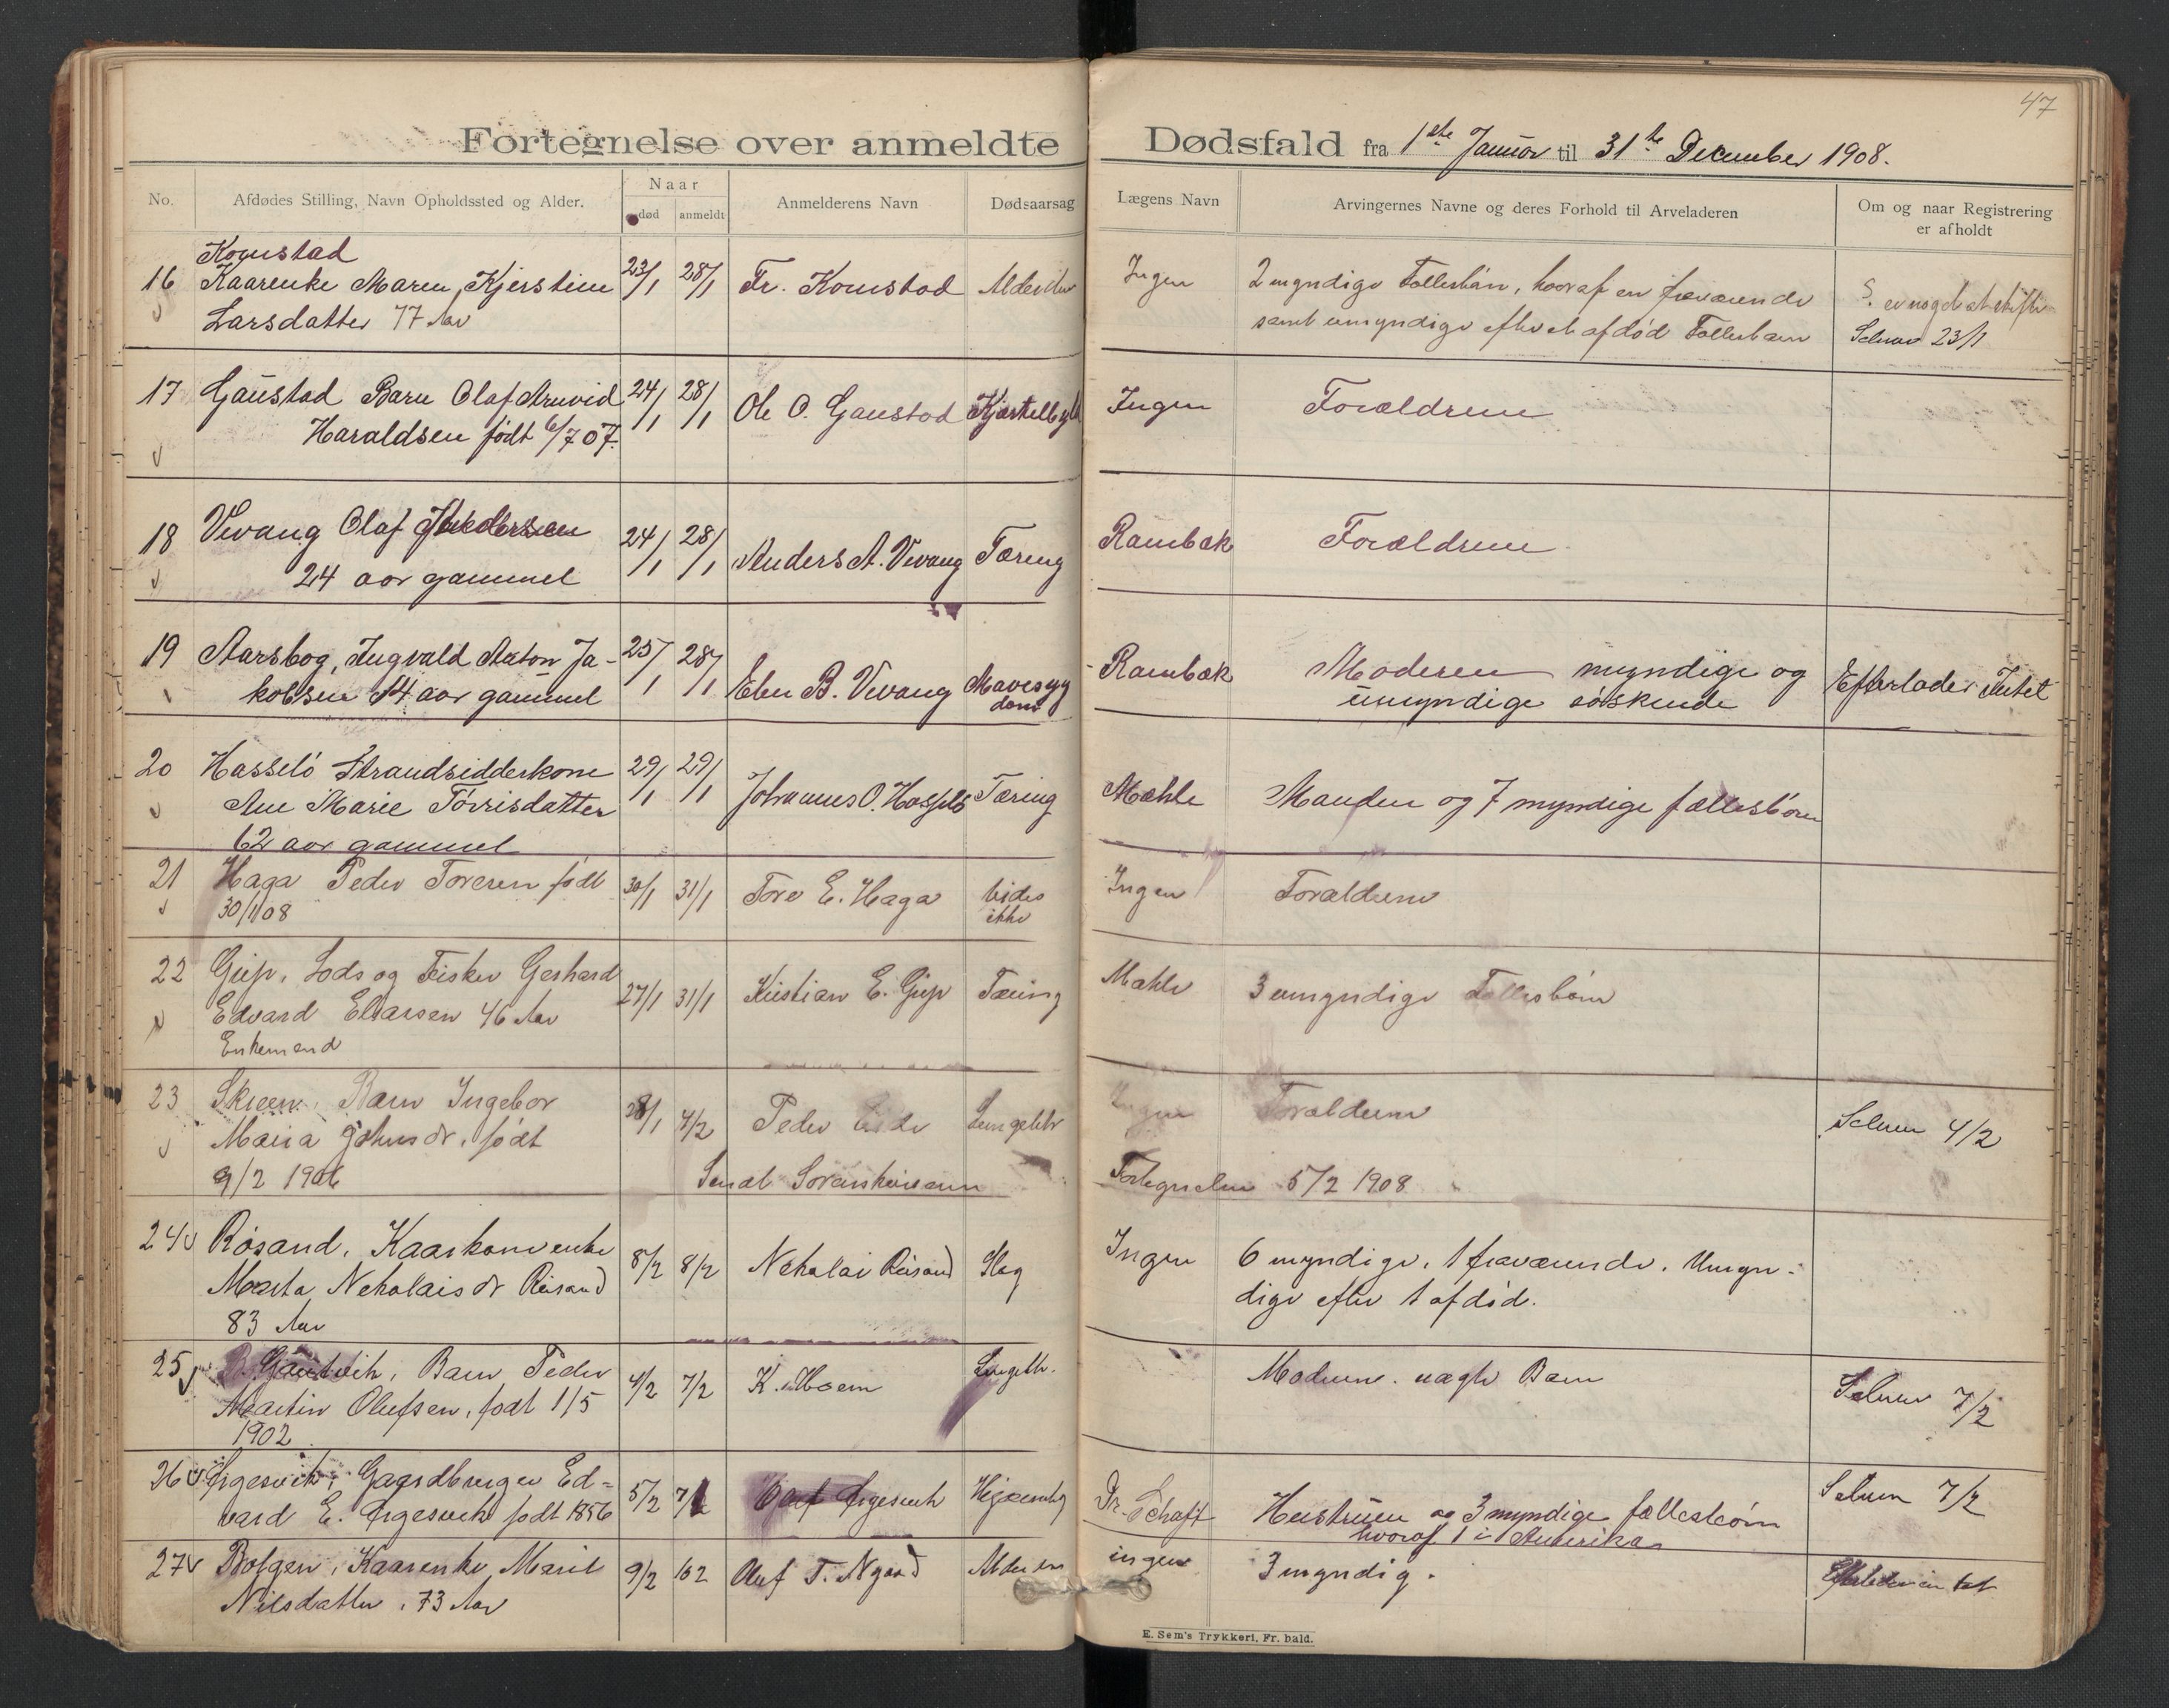 47
Fortegnelse over anmeldte Dødsfald fra 1ste Januar til 31te December 1908.
No. Afdødes Stilling, Navn Opholdssted og Alder. Naar død anmeldt Anmelderens Navn Dødsaarsag Lægens Navn Arvingernes Navne og deres Forhold til Arveladeren Om og naar Registrering er afholdt
Komstad
16 Kaarenke Maren Kjerstine 23/1 28/1 Fr. Komstad Alderdom Ingen 2 myndige Fællesbørn, hvoraf en fraværende
Larsdatter 77 Aar samt umyndige efter et afdød Fællesbarn
23/1
17 Gaustad Barn Olaf Arnvid 24/1 28/1 Ole O. Gaustad Ingen Forældrene
Haraldsen født 6/7 07.
18 Vevang Olaf 24/1 28/1 Anders A. Vevang Tæring Rambæk Forældrene
24 aar gammel
19 Aarsbog, Ingvald Anton Ja- 25/1 28/1 Eben B. Vevang Mavesyg Rambæk Moderen myndige og Efterlader Intet
kobsen 14 aar gammel dom umyndige søskende
20 Hasselö Strandsidderkone 29/1 29/1 Johannes O. Hasselö Tæring Mæhle Manden og 7 myndige fællesbörn
Ane Marie Törrisdatter
62 aar gammel
21 Haga Peder Toresen født 30/1 31/1 Tore E. Haga vides Ingen Forældrene
30/1 08 ikke
22 Grip, Lods og Fisker Gerhard 27/1 31/1 Kristian E. Grip Tæring Mæhle 3 umyndige Fællesbørn
Edvard Eliasen 46 Aar
Enkemand
23 Skreen, Barn Ingebor 28/1 4/2 Peder Ingen Forældrene 4/2
Maria Johnsdr. født
9/2 1906 Sendt Sorenskriveren Fortegnelse 5/2 1908
24 Røsand, Kaarkone enke 8/2 8/2 Nekolai Røsand Slag Ingen 6 myndige, 1 fraværende. Umyn-
Marta Nekolaisdr Røsand dige efter 1 afdød.
83 Aar
25 Barn Peder 4/2 7/2 K. Hoem Moderen. uægte Barn 7/2
Martin Olufsen, født 1/5
1902
26 Ørgesvik, Gaardbruger Ed- 5/2 7/2 Ørgesvik Dr. Schaft Hustruen og 3 myndige fællesbörn 7/2
vard E. Ørgesvik født 1856 hvoraf 1 i Amerika
27 Bolgen, Kaarenke Marit 9/2 10/2 Oluf T. Nygaard ingen 3 myndig.
Nilsdatter, 73 Aar
E. Sem's Trykkeri, Fr. hald.